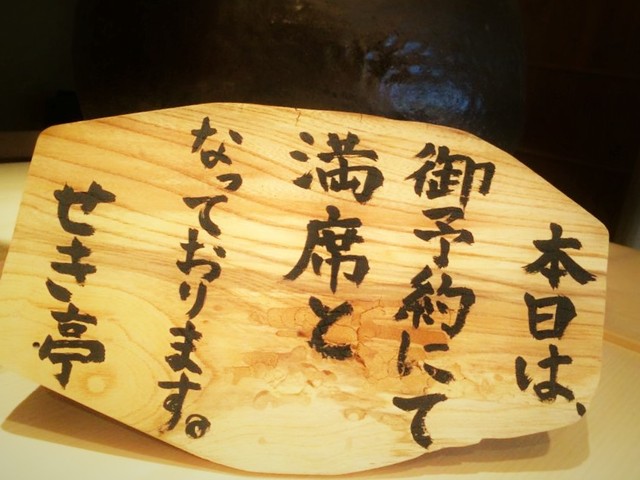 本日は、
御予約にて
満席と
なっております。
せき亭